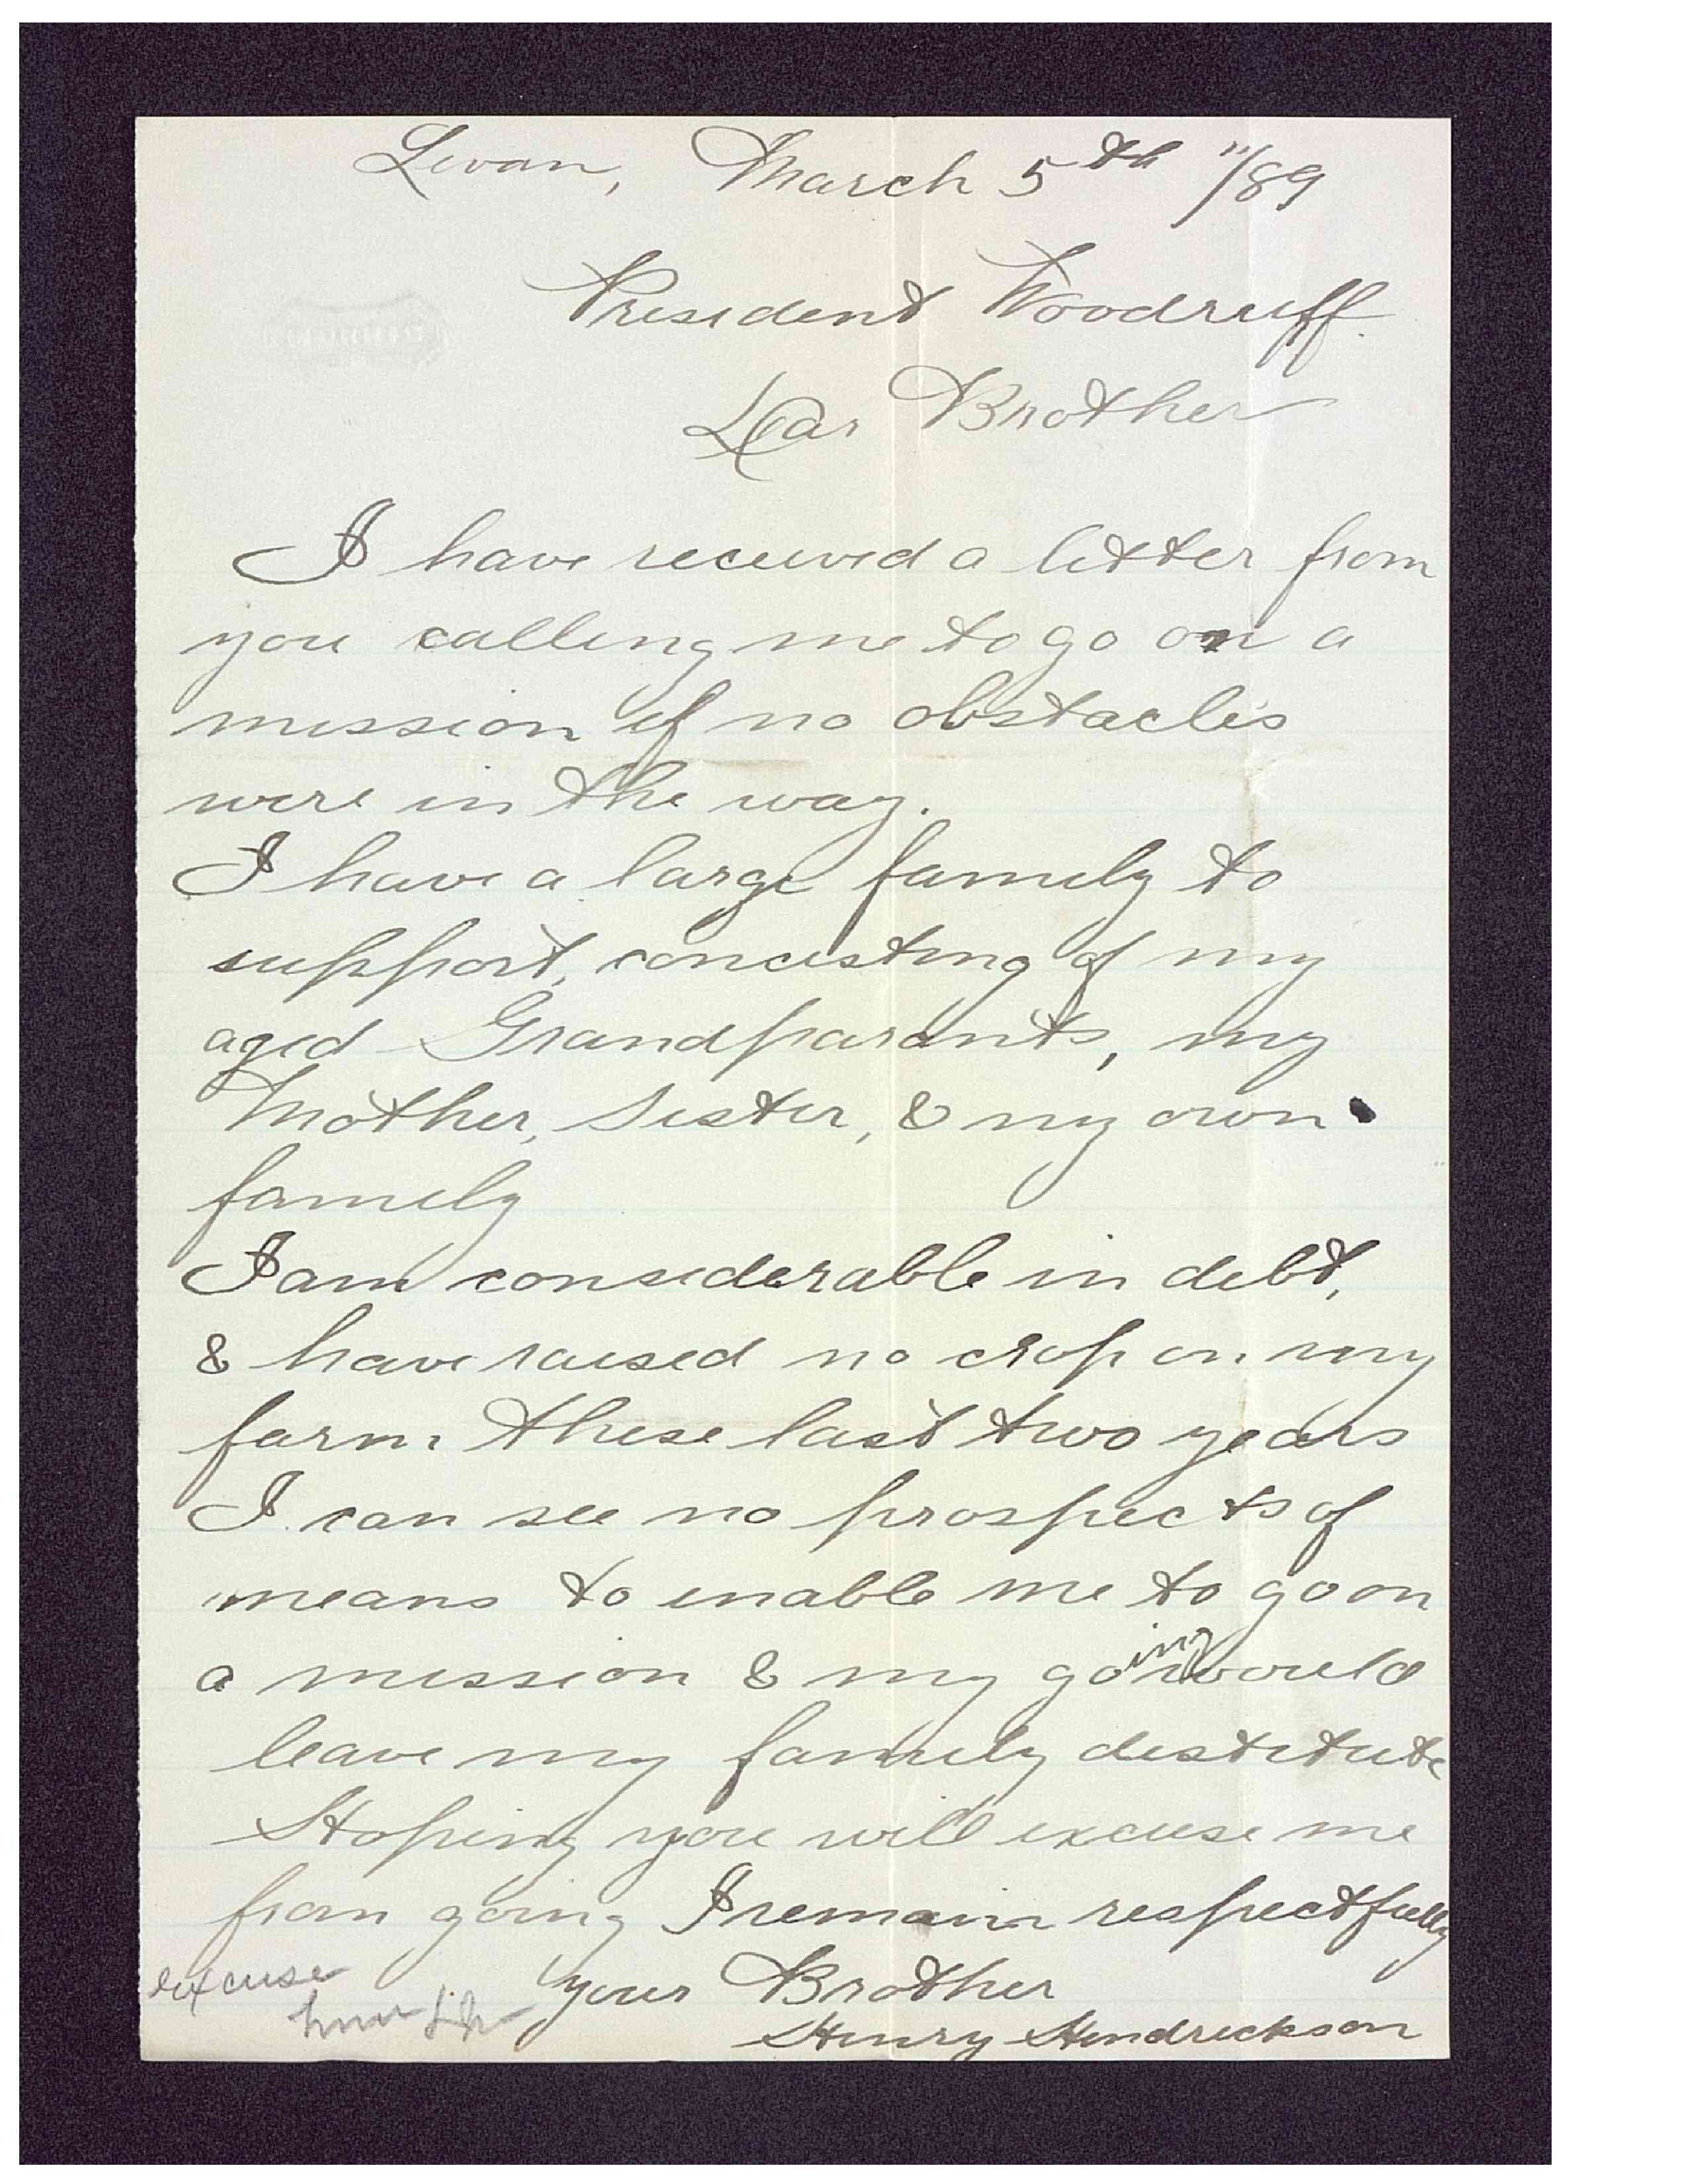 Levan, March 5th "/89
President Woodruff.
Dear Brother
I have received a letter from
you calling me to go on a
mission if no obstacles
were in the way.
I have a large family to
support, concisting of my
aged Grandparants, my
Mother, Sister, & my own
family
I am considerable in debt,
& have raised no crop on my
farm these last two years
I can see no prospects of
means to enable me to go on
a mission & my going would
leave my family destitute
Hoping you will excuse me
from going I remain respectfully
your Brother
Henry Hendrickson
excuse
him